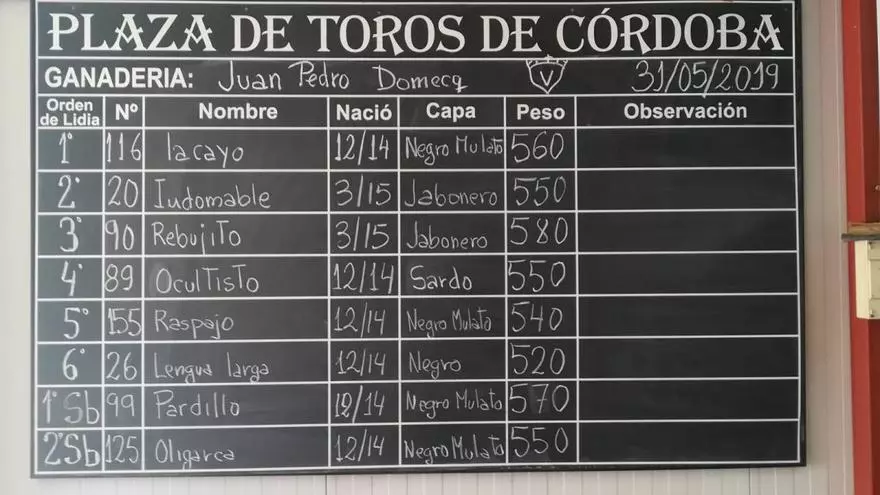 PLAZA DE TOROS DE CÓRDOBA
GANADERIA: Juan Pedro Domecq V 31/05/2019
Orden de Lidia Nº Nombre Nació Capa Peso Observación
1º 116 lacayo 12/14 Negro Mulato 560
2º 20 Indomable 3/15 Jabonero 550
3º 90 Rebujito 3/15 Jabonero 580
4º 89 Ocultisto 12/14 Sardo 550
5º 155 Raspajo 12/14 Negro Mulato 540
6º 26 Lengua larga 12/14 Negro 520
1º Sb 99 Pardillo 12/14 Negro Mulato 570
2º Sb 125 Oligarca 12/14 Negro Mulato 550